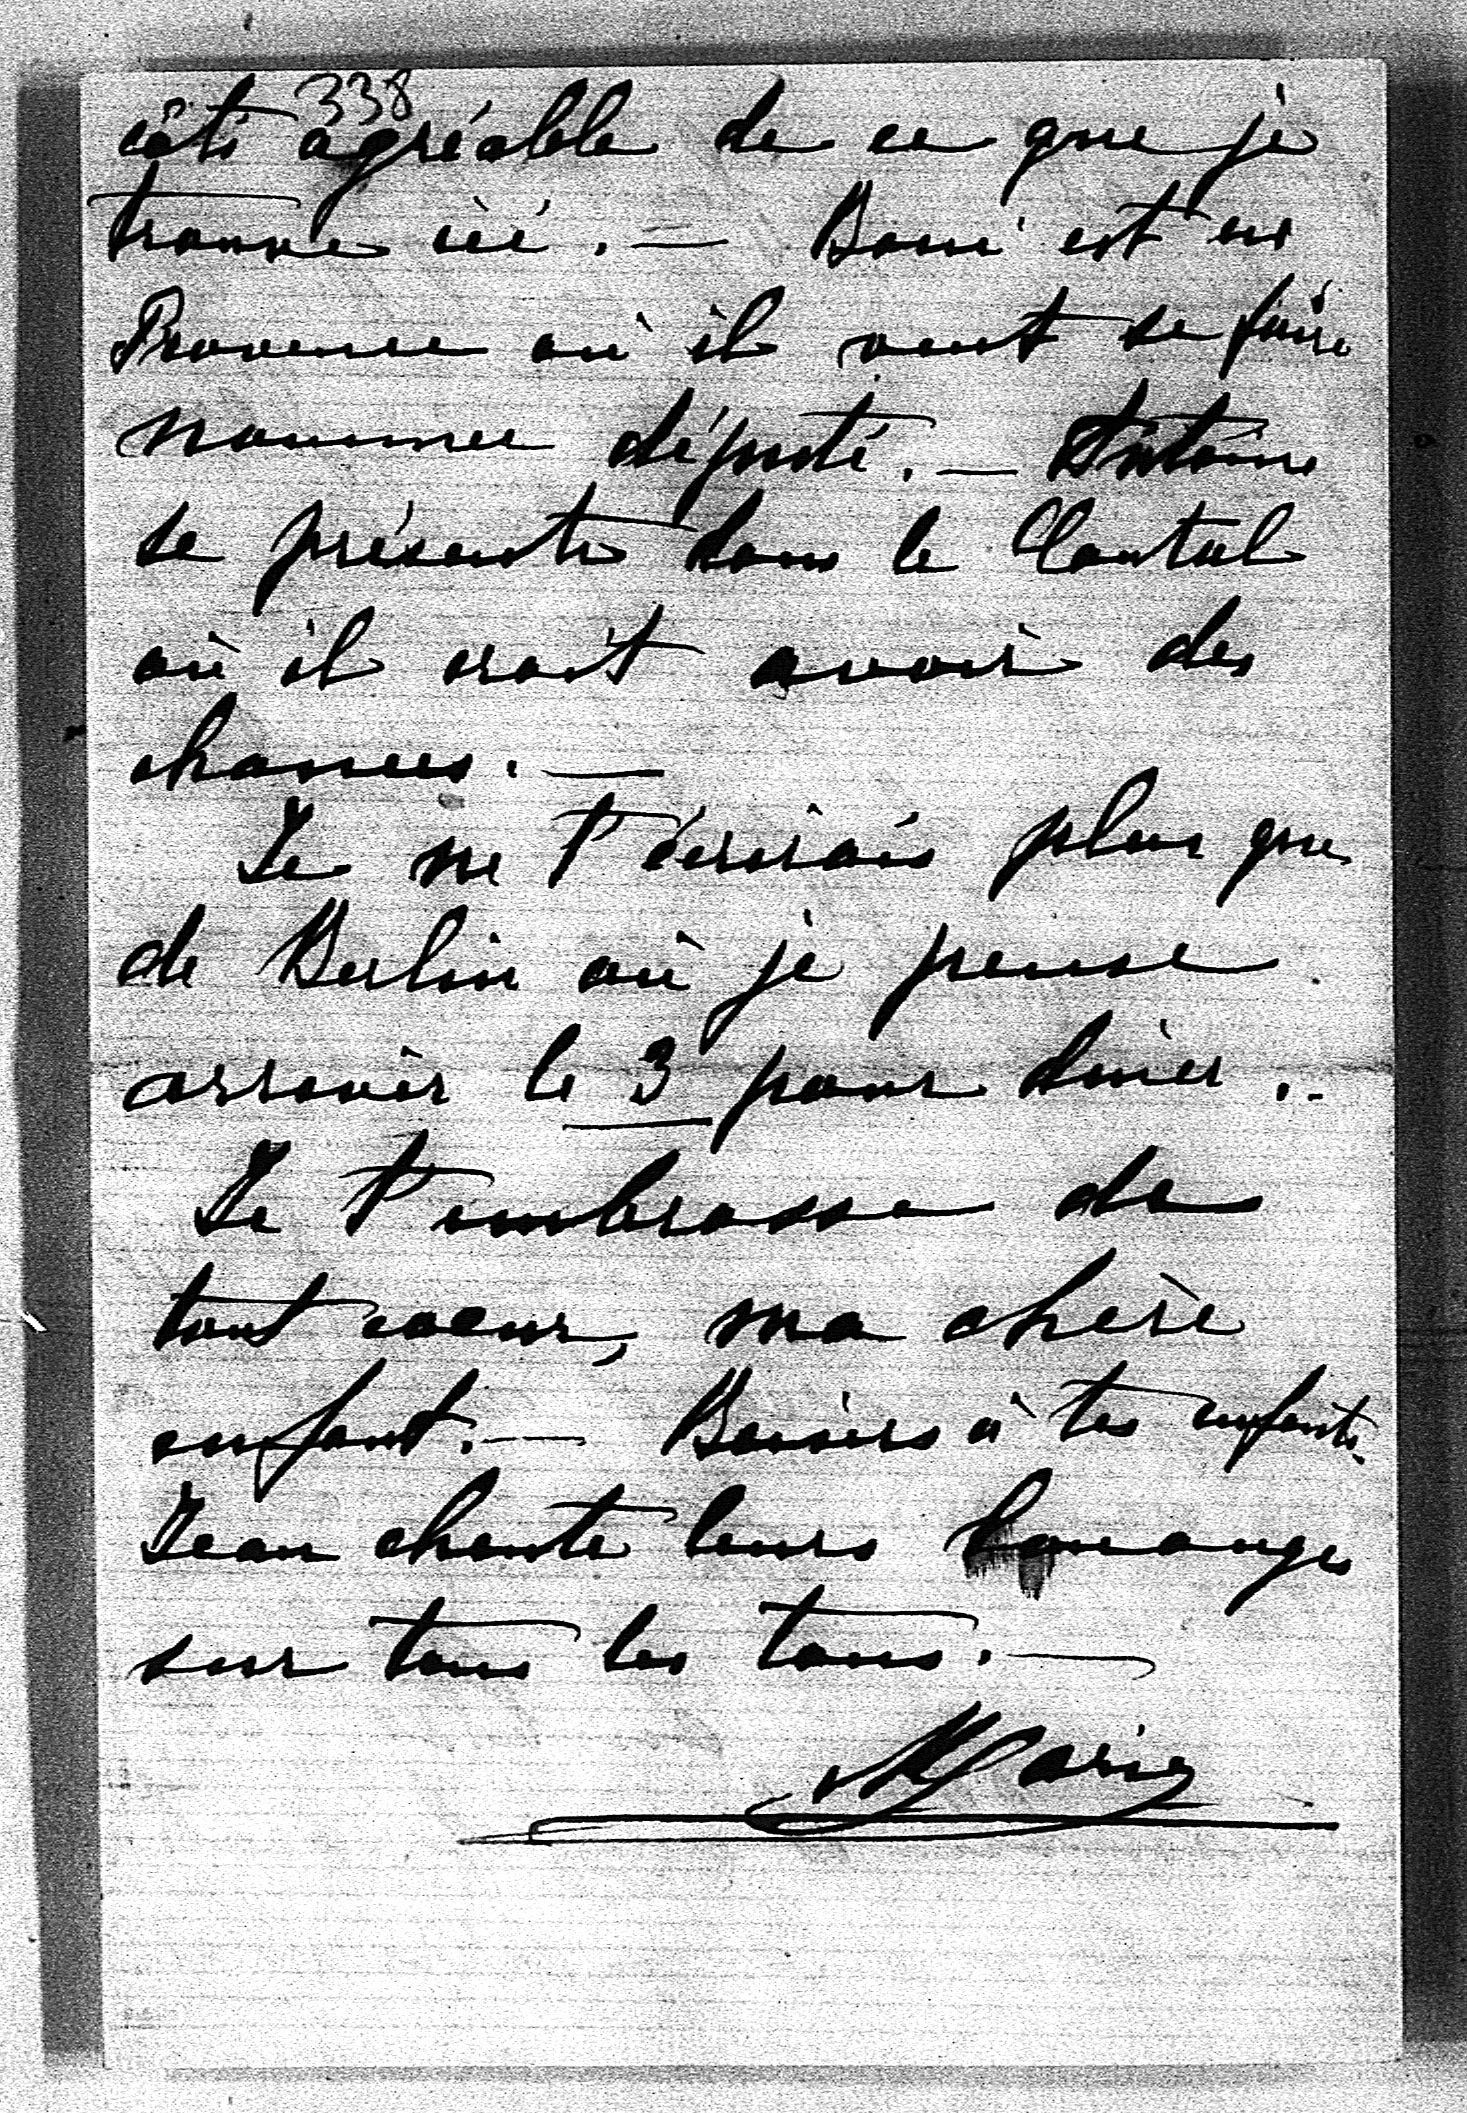 338
côté agréable de ce que je
trouve ici. — Boni est en
Provence où il veut se faire
nommer député. — Antoine
se présente dans le Cantal
où il croit avoir des
chances. —
Je ne t'écrirais plus que
de Berlin où je pense
arriver le 3 pour diner..
Je t'embrasse de
tout coeur, ma chère
enfant. — Baisers à tes enfants.
Jean chante leurs louanges
sur tous les tons. —
Marie